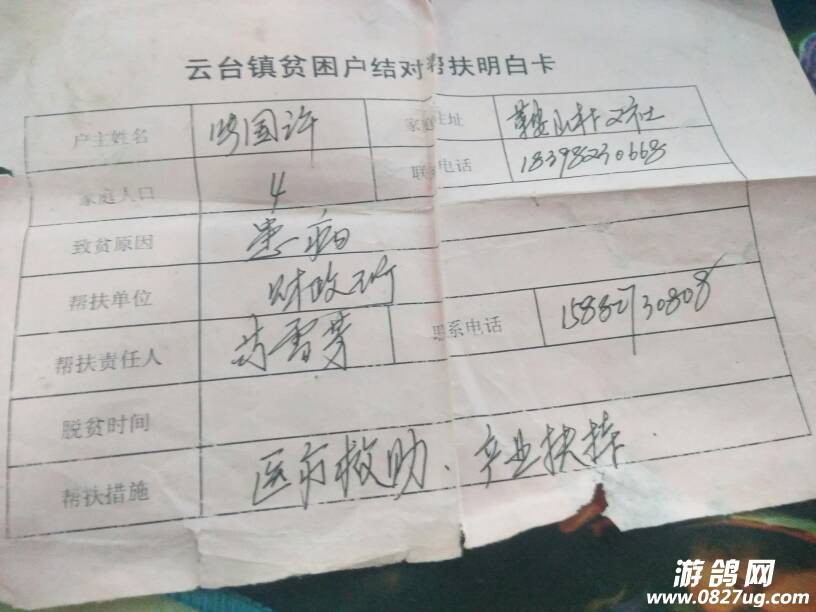 云台镇贫困户结对帮扶明白卡
户主姓名 国许 家庭住址
家庭人口 4 联系电话 18398230668
致贫原因 患病
帮扶单位 财政所
帮扶责任人 雪芳 联系电话 15882730808
脱贫时间
帮扶措施 医疗救助、产业扶持.
游鸽网
www.0827ug.com